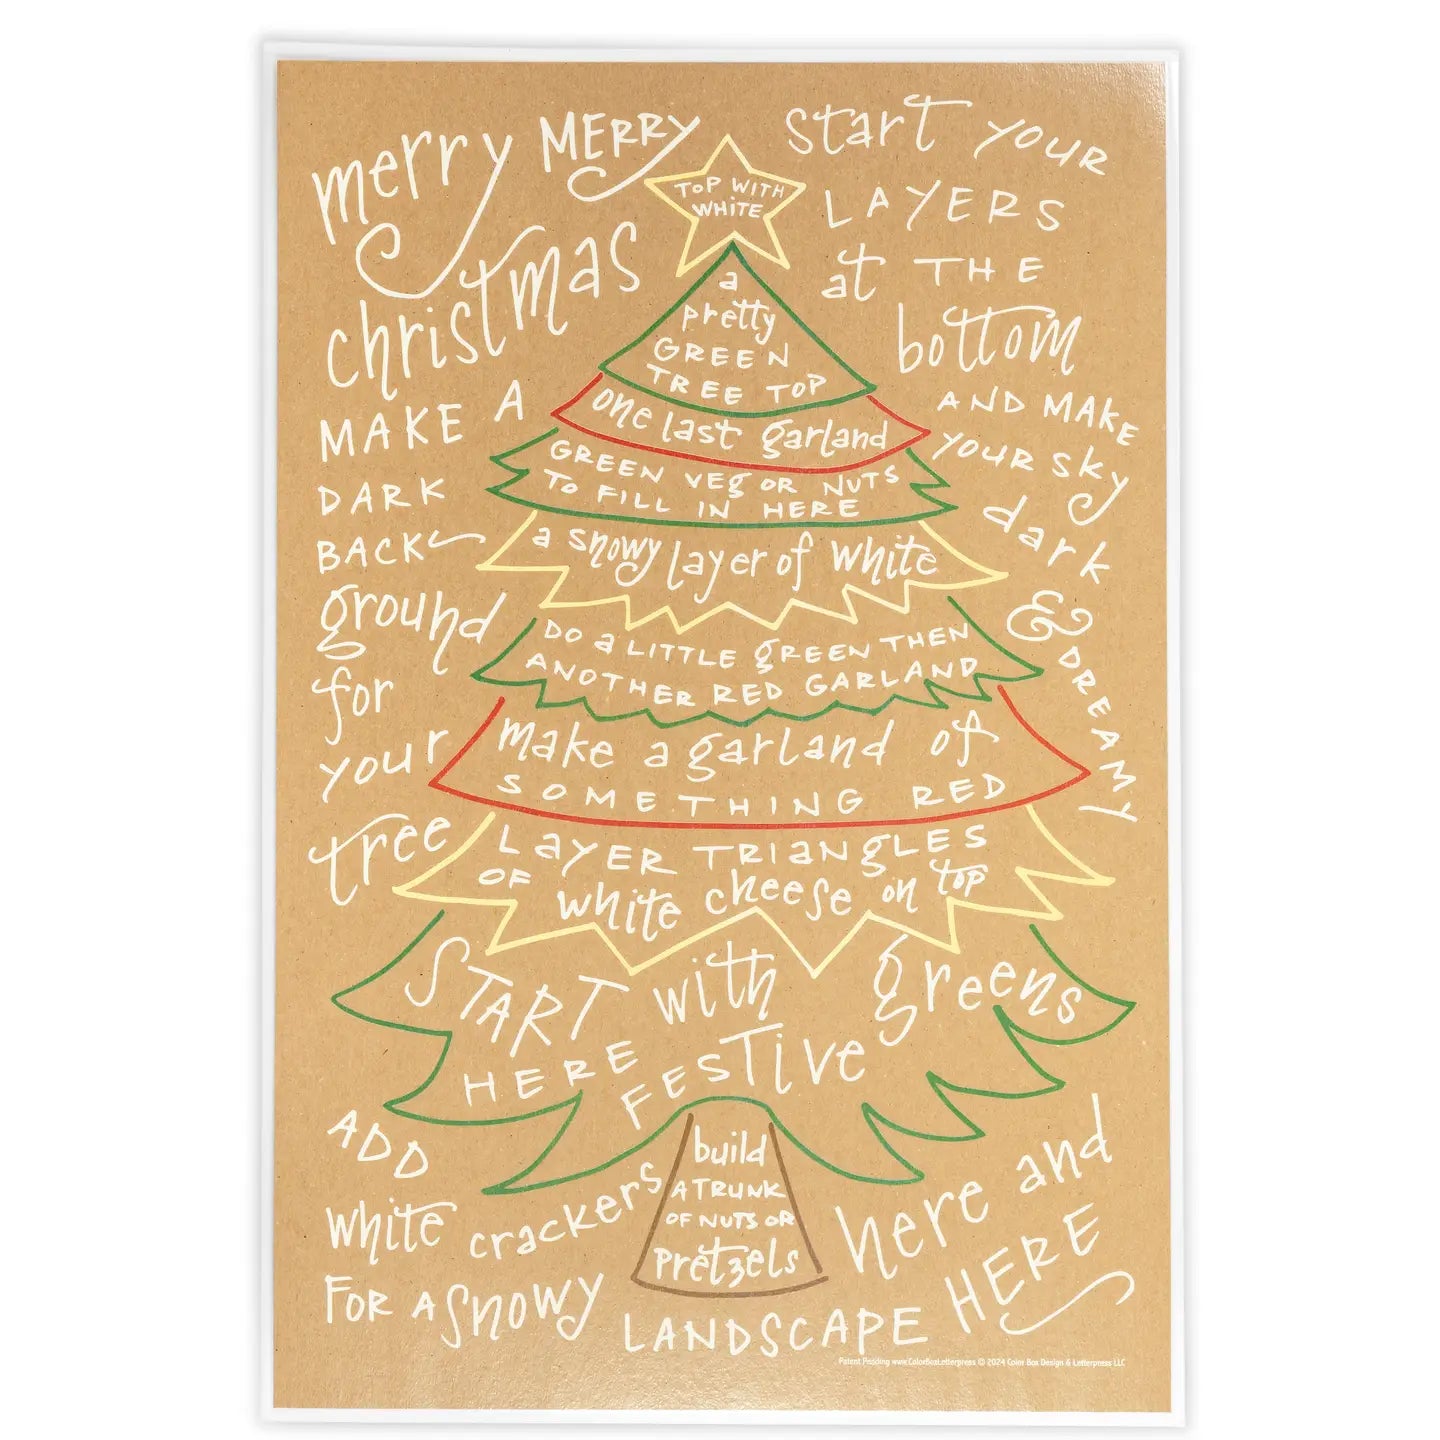 merry MERRY
christmas
MAKE A
DARK
BACK
ground
for
your
tree
start YOUR
LAYERS
at THE
bottom
AND MAKE
YOUR SKY
dark
& DREAMY
TOP WITH
WHITE
a
pretty
GREEN
TREE TOP
one last garland
GREEN VEG OR NUTS
TO FILL IN HERE
a snowy layer of white
DO a LITTLE gREEN THEN
ANOTHER RED GARLAND
make a garland of
SOMETHING RED
LAYER TRIANGLES
OF white cheese on top
START with greens
HERE FESTIVE
build
A TRUNK
OF NUTS OR
pretzels
ADD
white crackers
FOR A snowy
LANDSCAPE
here and
HERE
Patent Pending www.ColorBoxLetterpress © 2024 Color Box Design & Letterpress LLC